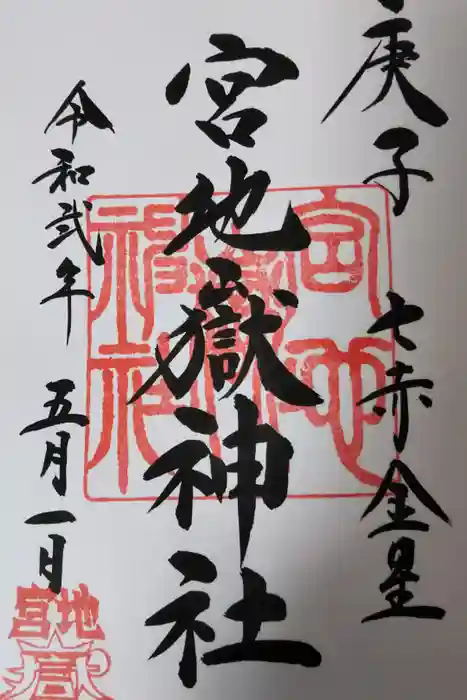 庚子 七赤金星
宮地嶽神社
令和弐年 五月一日
宮地
嶽
神社
宮地嶽